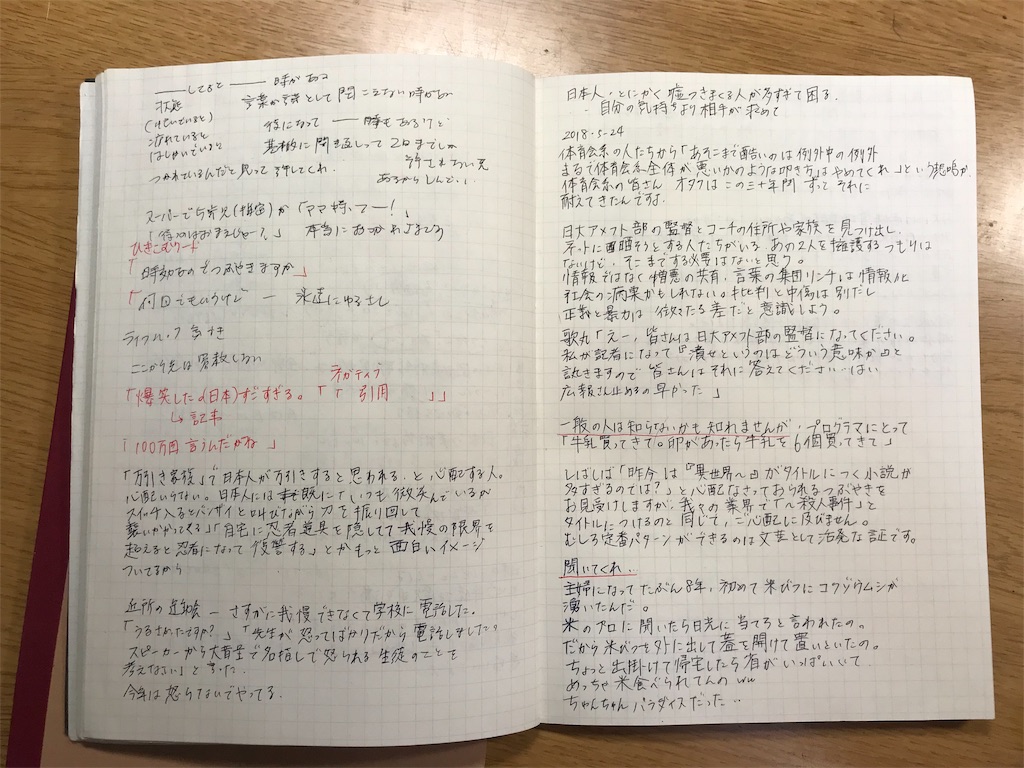 ――してると―― 時がある
状態 言葉が言葉として聞こえない時がある
(けむいていると) 役になって ― 時もあるけど
疲れていると 基本的に聞き返しって2回までしか
はしゃいでいると 許されない気
つかれているんだと思って許してくれ。 あるからしんどい
スーパーで5歳児(推定)が「ママ待ってー!」
本当におつかれさまです
ひきこむワード
「時効なのでつぶやきますが」
「何回でもいうけど ― 永遠にゆるさん
ライフハックすぎ
ここから先は容赦しない
ネガティブ
「爆笑したα(日本)すごすぎる。「「 引用 」」
↳ 記事
「100万回言うんだがね」
「万引き家族」で日本人が万引きすると思われる、と心配する人。
心配いらない。日本人には既に「いつも微笑んでいるが
スイッチ入るとバンザイと叫びながら刀を振り回して
襲いかかってくる」「自宅に忍者道具を隠してて我慢の限界を
超えると忍者になって復讐する」とかもっと面白いイメージ
ついてるから
近所の運動会 ― さすがに我慢できなくて学校に電話した。
「うるさかったですか?」「先生が怒ってばかりだから電話しました。
スピーカーから大音量で名指しで怒られる生徒のことを
考えなさい」と言った
今年は怒らないでやってる.
日本人・とにかく嘘つきまくる人が多すぎて困る.
・自分の気持ちより相手が求めて
2018.5.24
体育会系の人たちから「あそこまで酷いのは例外中の例外
まるで体育会系全体が悪いかのような叩き方はやめてくれ」という悲鳴が.
体育会系の皆さん オタクはこの三十年間 ずっと それに
耐えてきたんですよ.
日大アメフト部の監督とコーチの住所や家族を見つけ出し.
ネットに晒そうとする人たちがいる.あの2人を擁護するつもりは
ないけど、そこまでする必要はないと思う。
情報ではなく憎悪の共有、言葉の集団リンチは情報化
社会の病巣かもしれない。#批判と中傷は別だし
正義と暴力は 微々たる差だと意識しよう。
歌丸「えー、皆さんは日大アメフト部の監督になってください。
私が記者になって『潰せというのはどういう意味か』と
訊きますので 皆さんはそれに答えてください…はい
広報さん止めるの早かった」
一般の人は知らないかも知れませんが、プログラマにとって
「牛乳買ってきて。卵があったら牛乳を6個買ってきて」
しばしば「昨今は『異世界〜』がタイトルにつく小説が
多すぎるのでは?」と心配なさっておられるつぶやきを
お見受けしますが、我々の業界で「〜殺人事件」と
タイトルにつけるのと同じで、ご心配に及びません。
むしろ定番パターンができるのは文芸として活発な証です。
聞いてくれ.
主婦になってたぶん8年、初めて米びつにコクゾウムシが
湧いたんだ。
米のプロに聞いたら日光に当てろと言われたの。
だから米びつを外に出して蓋を開けて置いといたの。
ちょっと出掛けて帰宅したら雀がいっぱいいて.
めっちゃ米食べられてんのww
ちゅんちゅんパラダイスだった…